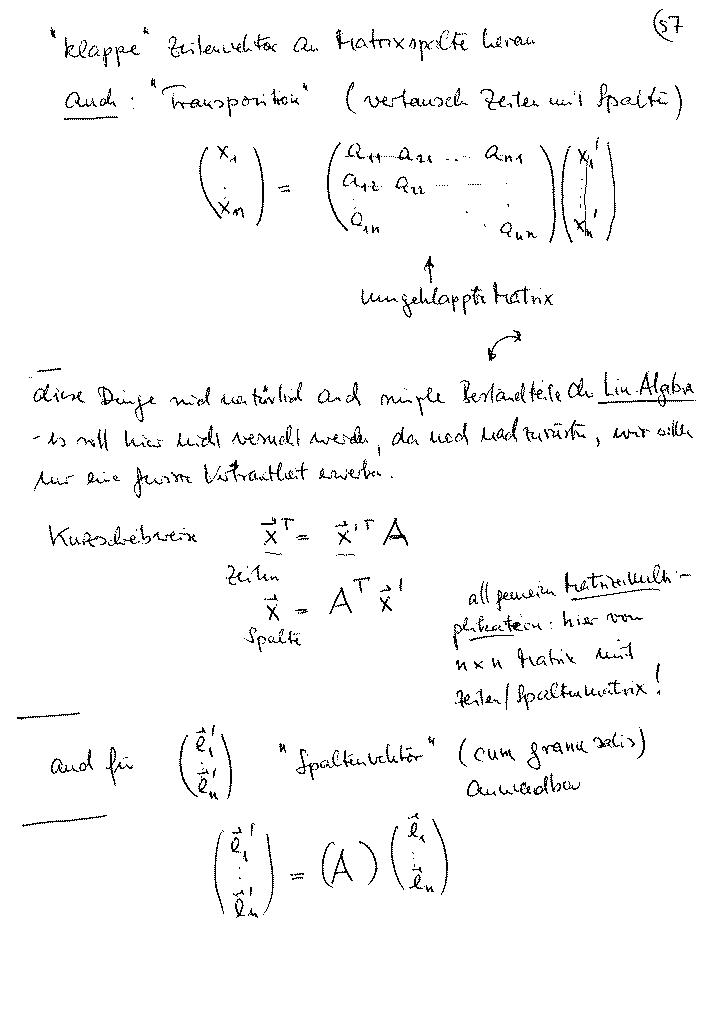 (57
"klappe" Zeilenvektor an Matrixspalte heran
auch: "Transposition" (vertausch Zeilen mit Spalten)
( x₁ ⋮ xₙ ) = ( a₁₁ a₂₁ ... aₙ₁ a₁₂ a₂₂ ... a₁ₙ ... aₙₙ ) ( x₁' ⋮ xₙ' )
↑
umgeklappte Matrix
diese Dinge sind natürlich auch simple Bestandteile der Lin Algebra
- es soll hier nicht versucht werden, da, wir wollen
nur eine gewisse Vertrautheit erwerben.
Kurzschreibweise x⃗ᵀ = x⃗'ᵀ A
Zeilen
x⃗ = Aᵀ x⃗'
Spalte
allgemein Matrizenmulti-
plikation: hier von
n×n Matrix mit
Zeilen/Spaltenmatrix!
auch für ( e⃗₁' ⋮ e⃗ₙ' ) "Spaltenvektor" (cum grano salis)
anwendbar
( e⃗₁' ⋮ e⃗ₙ' ) = (A) ( e⃗₁ ⋮ e⃗ₙ )